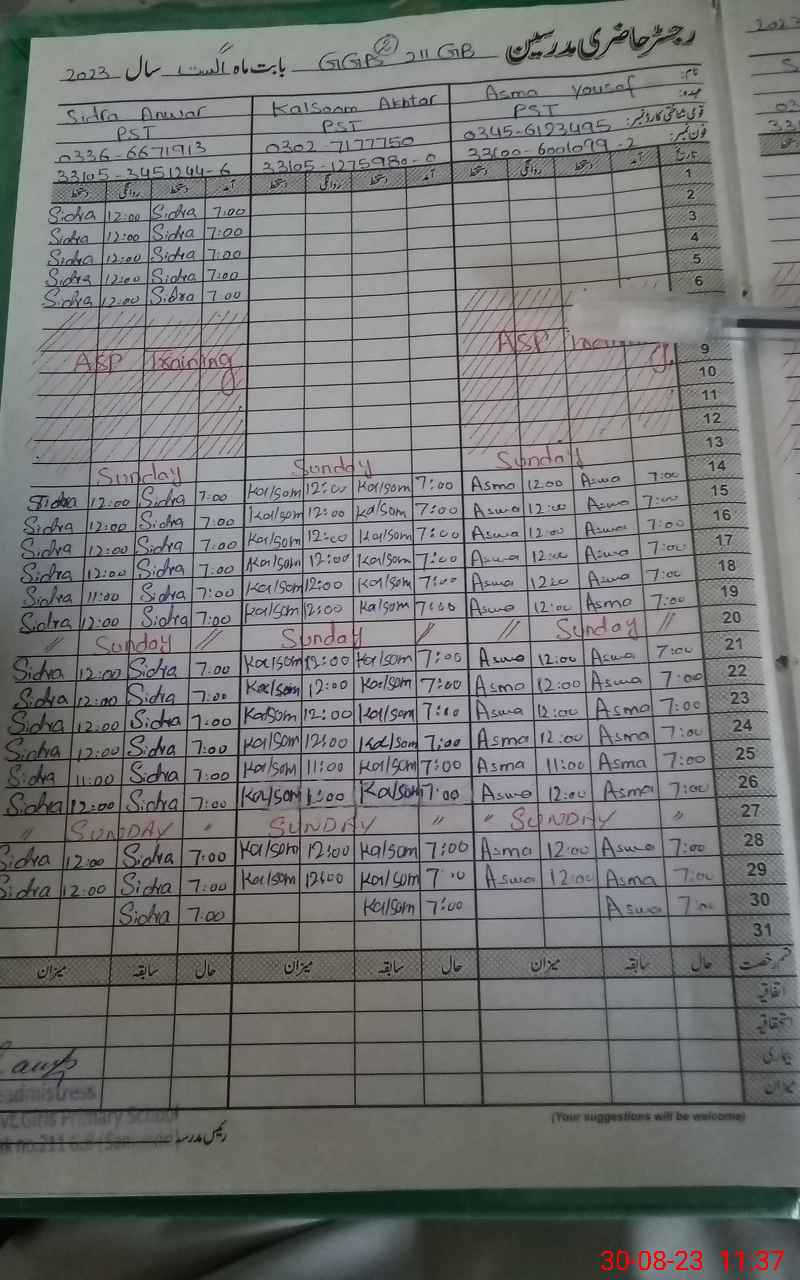 رجسٹر حاضری مدرسین GGPS 211 GB بابت ماہ اگست سال 2023
Asma Yousaf Kalsoom Akhtar Sidra Anwar
PST PST PST
0345-6123495 0302-7177750 0336-6671913
33100-6001099-2 33105-1275980-0 33105-3451244-6
تاریخ آمد دستخط روانگی دستخط آمد دستخط روانگی دستخط آمد دستخط روانگی دستخط
1
Sidra 12:00 Sidra 7:00 2
Sidra 12:00 Sidra 7:00 3
Sidra 12:00 Sidra 7:00 4
Sidra 12:00 Sidra 7:00 5
Sidra 12:00 Sidra 7:00 6
ASP Training ASP 9
10
11
12
Sunday Sunday Sunday 13
Sidra 12:00 Sidra 7:00 Kalsom 12:00 Kalsom 7:00 Asma 12:00 Asma 7:00 14
Sidra 12:00 Sidra 7:00 Kalsom 12:00 Kalsom 7:00 Asma 12:00 Asma 7:00 15
Sidra 12:00 Sidra 7:00 Kalsom 12:00 Kalsom 7:00 Asma 12:00 Asma 7:00 16
Sidra 12:00 Sidra 7:00 Kalsom 12:00 Kalsom 7:00 Asma 12:00 Asma 7:00 17
Sidra 11:00 Sidra 7:00 Kalsom 12:00 Kalsom 7:00 Asma 1200 Asma 7:00 18
Sidra 12:00 Sidra 7:00 Kalsom 12:00 Kalsom 7:00 Asma 12:00 Asma 7:00 19
// Sunday // Sunday // // Sunday // 20
Sidra 12:00 Sidra 7:00 Kalsom 12:00 Kalsom 7:00 Asma 12:00 Asma 7:00 21
Sidra 12:00 Sidra 7:00 Kalsom 12:00 Kalsom 7:00 Asma 12:00 Asma 7:00 22
Sidra 12:00 Sidra 7:00 Kalsom 12:00 Kalsom 7:00 Asma 12:00 Asma 7:00 23
Sidra 12:00 Sidra 7:00 Kalsom 12:00 Kalsom 7:00 Asma 12:00 Asma 7:00 24
Sidra 11:00 Sidra 7:00 Kalsom 11:00 Kalsom 7:00 Asma 11:00 Asma 7:00 25
Sidra 12:00 Sidra 7:00 Kalsom Kalsom 7:00 Asma 12:00 Asma 7:00 26
// SUNDAY // SUNDAY // // SUNDAY // 27
Sidra 12:00 Sidra 7:00 Kalsom 12:00 Kalsom 7:00 Asma 12:00 Asma 7:00 28
Sidra 12:00 Sidra 7:00 Kalsom 12:00 Kalsom 7:00 Asma 12:00 Asma 7:00 29
Sidra 7:00 Kalsom 7:00 Asma 7:00 30
31
قسم رخصت حال سابقہ میزان حال سابقہ میزان حال سابقہ میزان
اتفاقیہ
استحقاقیہ
بیماری
میزان
(Your suggestions will be welcome)
Girls Primary School
رئیس مدرسہ
30-08-23 11:37